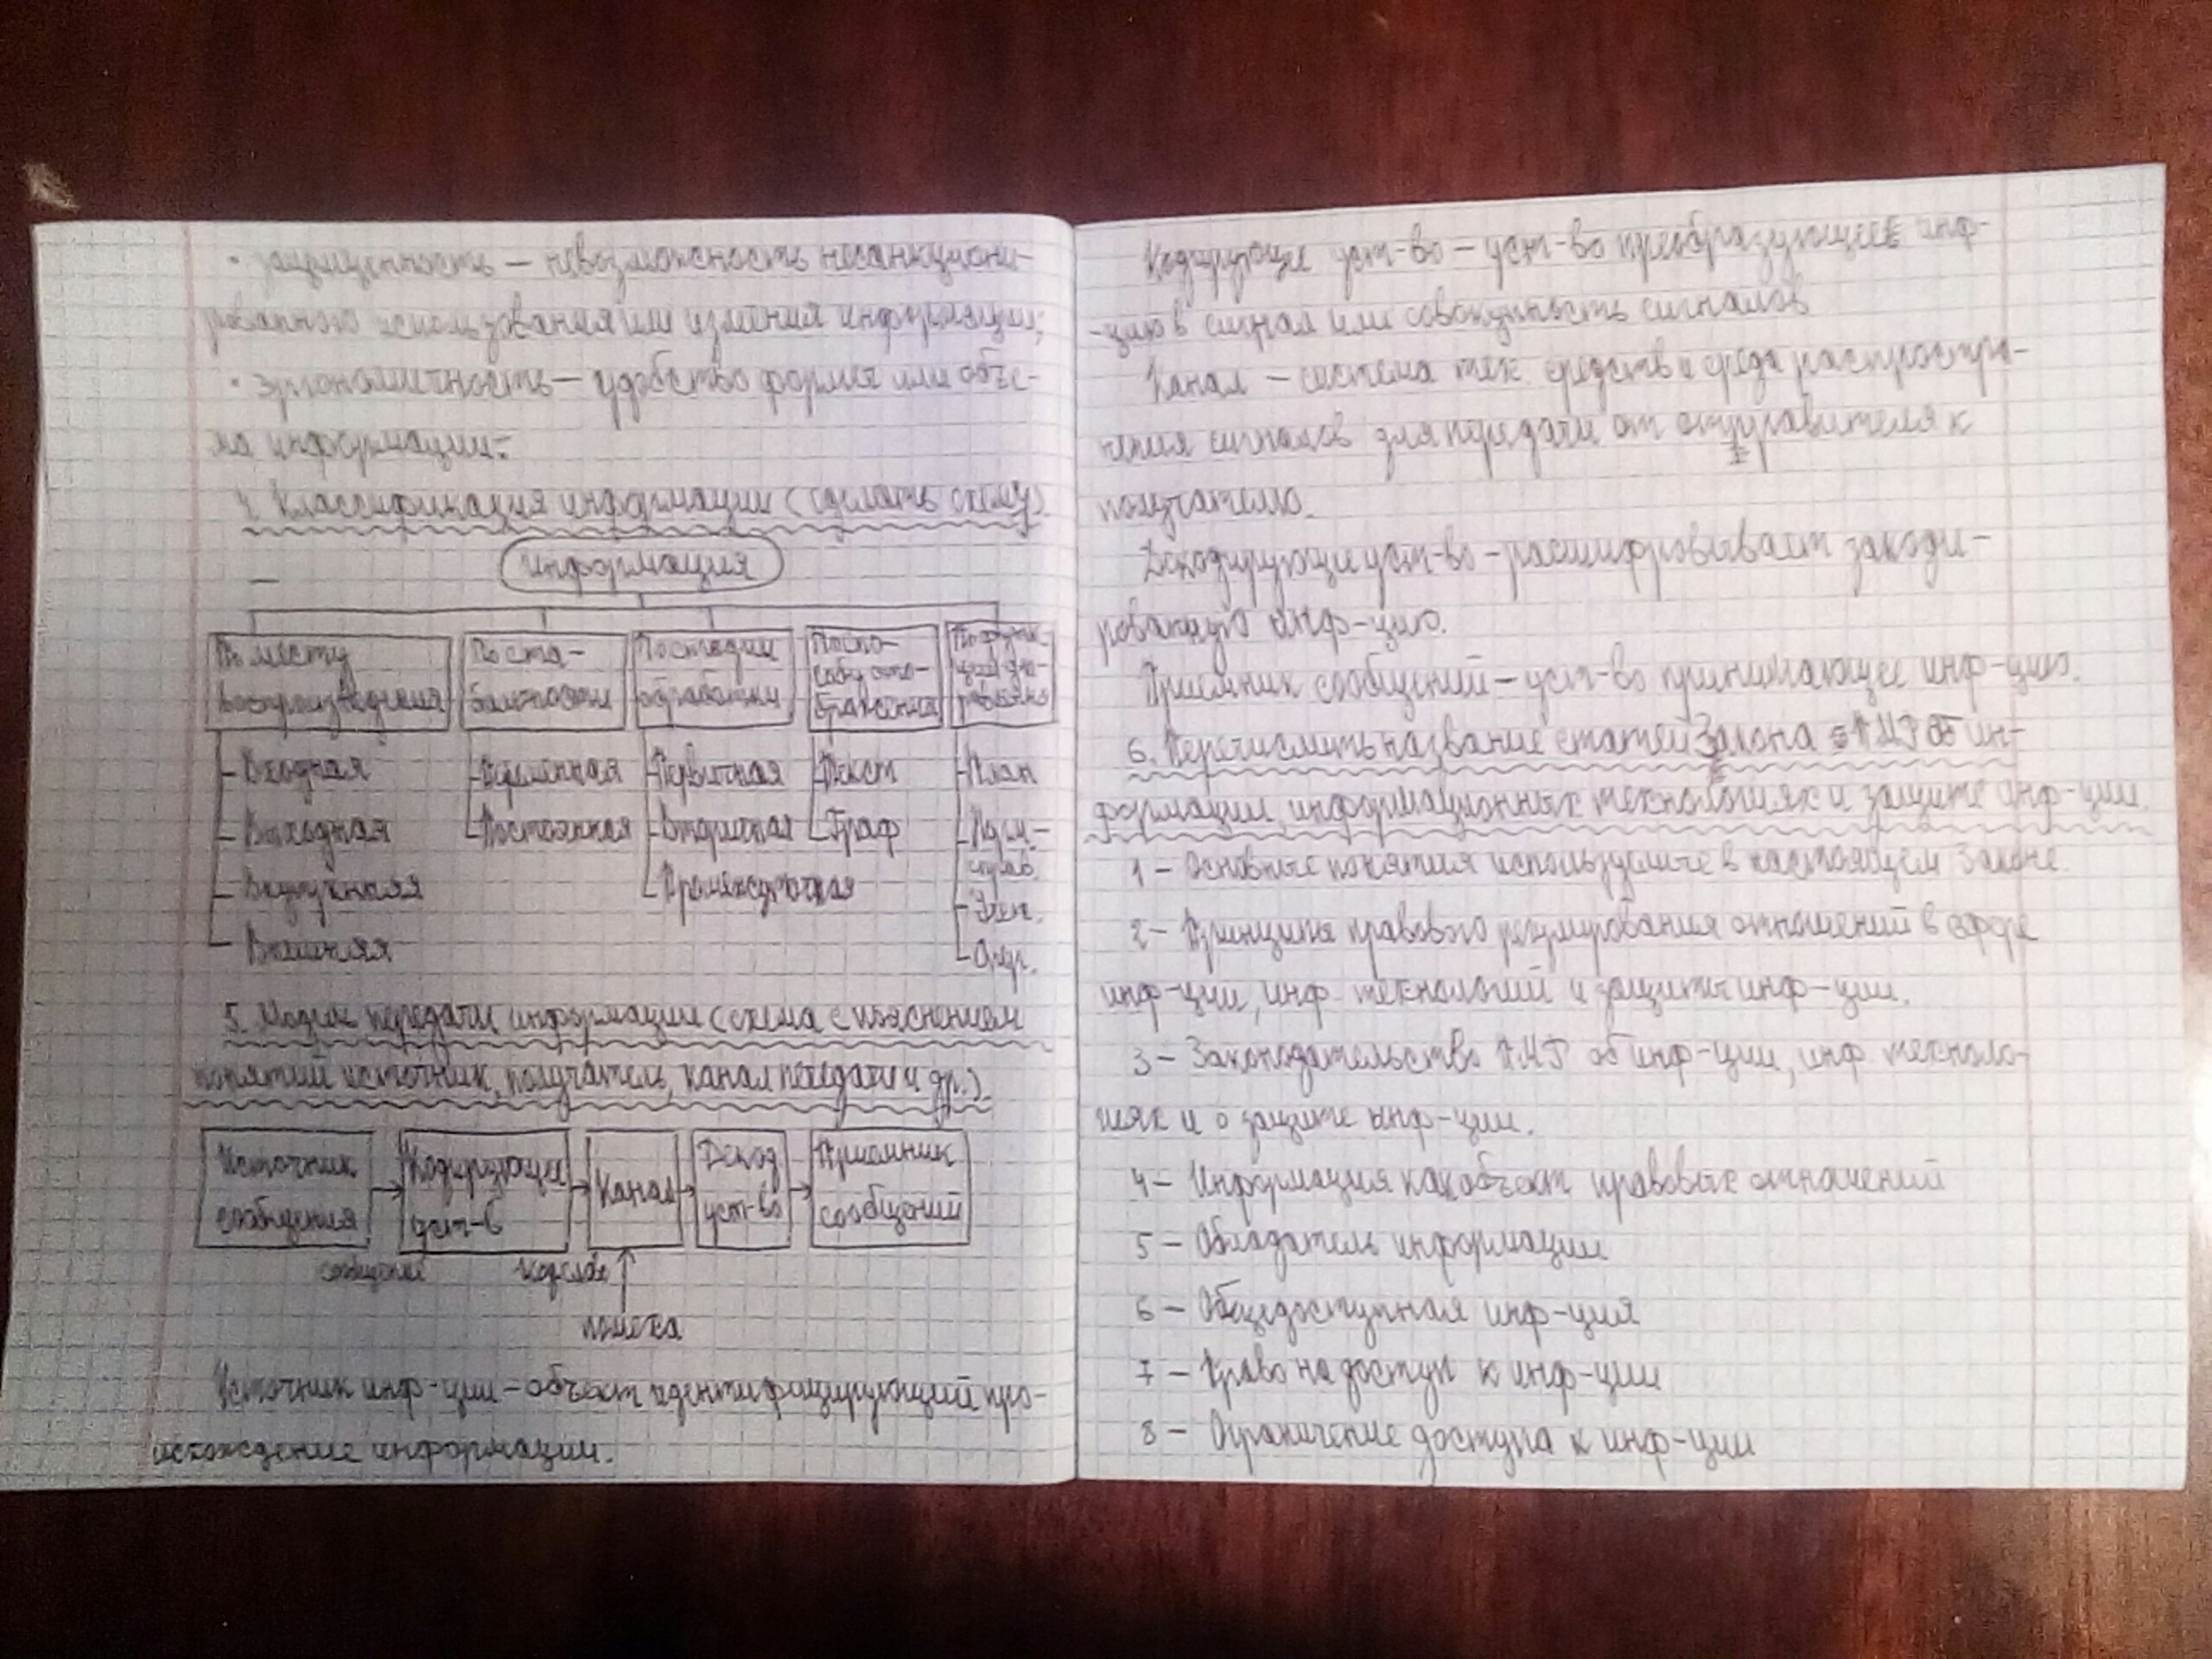 • защищенность — невозможность несанкциони-
рованного использования или изменения информации;
• эргономичность — удобство формы или объе-
ма информации.
4. Классификация информации (сделать схему)
Информация
По месту
воспроизведения
Входная
Выходная
Внутренняя
Внешняя
По ста-
бильности
Переменная
Постоянная
По стадии
обработки
Первичная
Вторичная
Промежуточная
По спо-
собу ото-
бражения
Текст
Граф
По функ-
План
Норм-
справ.
Опер.
5. Модель передачи информации (схема с пояснением
понятий источник, получатель, канал передачи и др.).
Источник
сообщения
Кодирующее
уст-в
Канал
Декод
уст-во
Приёмник
сообщений
помеха
Источник инф-ции — объект идентифицирующий про-
исхождение информации.
Кодирующее уст-во — уст-во преобразующее инф-
-цию в сигнал или совокупность сигналов
Канал — система тех. средств и среда распростра-
нения сигналов для передачи от отправителя к
получателю.
Декодирующее уст-во - расшифровывает закоди-
рованную инф-цию.
Приёмник сообщений — уст-во принимающее инф-цию.
6. Перечислить название статей Закона ПМР об ин-
формации, информационных технологиях и защите инф-ции.
1 — Основные понятия используемые в настоящем Законе.
2 — Принципы правового регулирования отношений в сфере
инф-ции, инф технологий и защиты инф-ции.
3 — Законодательство ПМР об инф-ции, инф техноло-
гиях и о защите инф-ции.
4 — Информация как объект правовых отначений
5 — Обладатель информации
6 — Общедоступная инф-ция
7 — Право на доступ к инф-ции
8 — Ограничение доступа к инф-ции